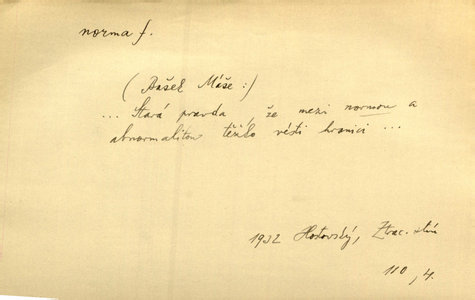 norma f.
( Bašek Máše :)
... Stará pravda, že mezi normou a
abnormalitou těžko vésti hranici ...
1932 Hostovský, Ztrac. stín
110, 4.